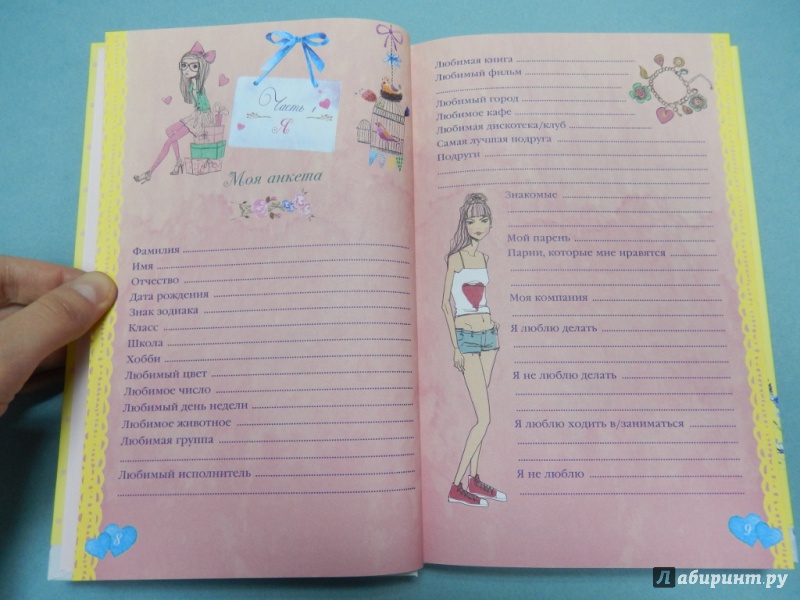 Часть 1
Я
Моя анкета
Фамилия
Имя
Отчество
Дата рождения
Знак зодиака
Класс
Школа
Хобби
Любимый цвет
Любимое число
Любимый день недели
Любимое животное
Любимая группа
Любимый исполнитель
8
Любимая книга
Любимый фильм
Любимый город
Любимое кафе
Любимая дискотека/клуб
Самая лучшая подруга
Подруги
Знакомые
Мой парень
Парни, которые мне нравятся
Моя компания
Я люблю делать
Я не люблю делать
Я люблю ходить в/заниматься
Я не люблю
9
Лабиринт.ру